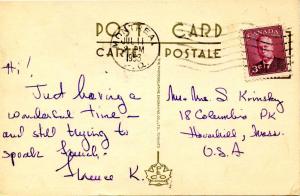 POST CARD
CARTE POSTALE
MONTREAL
JUL 11
PM
1953
P.Q.
CANADA
3¢
Hi!
Just having a
wonderful time -
and still trying to
speak French.
Mr. Mrs. S Krinsky
18 Columbia Pk
Haverhill, Mass.
U.S.A